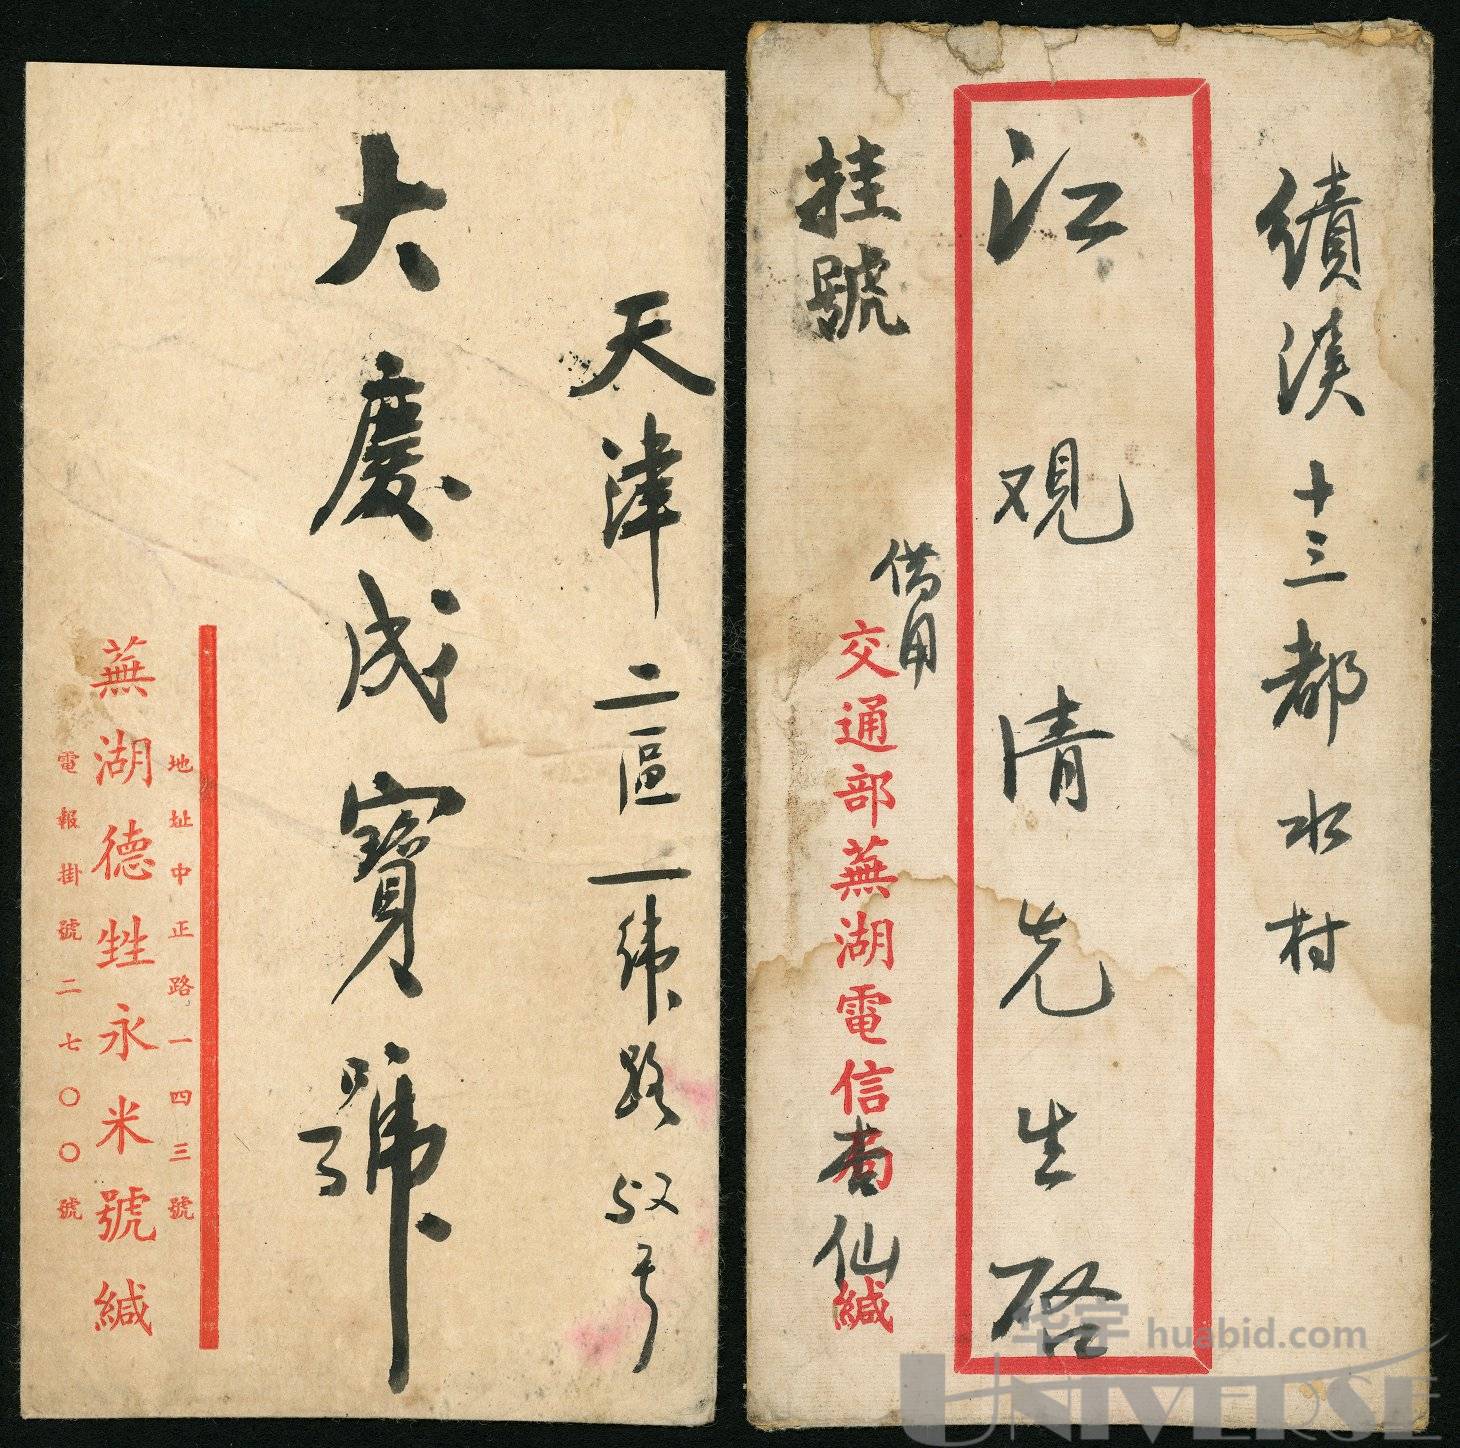 天津二區一緯路52号
大慶成寶號
地址中正路一四三號
蕪湖德甡永米號緘
電報掛號二七〇〇號
績溪十三都水村
江观清先生啓
挂號
借用
交通部蕪湖電信局緘
仙
华宇 huabid.com
UNIVERSE